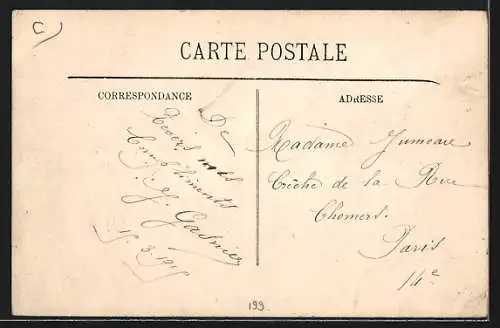 C)
CARTE POSTALE
CORRESPONDANCE
ADRESSE
De
mes
Compliments
J. Gasnier
15.3.1915
Madame Jumeau
Crèche de la Rue
Chomers.
Paris
14e
199